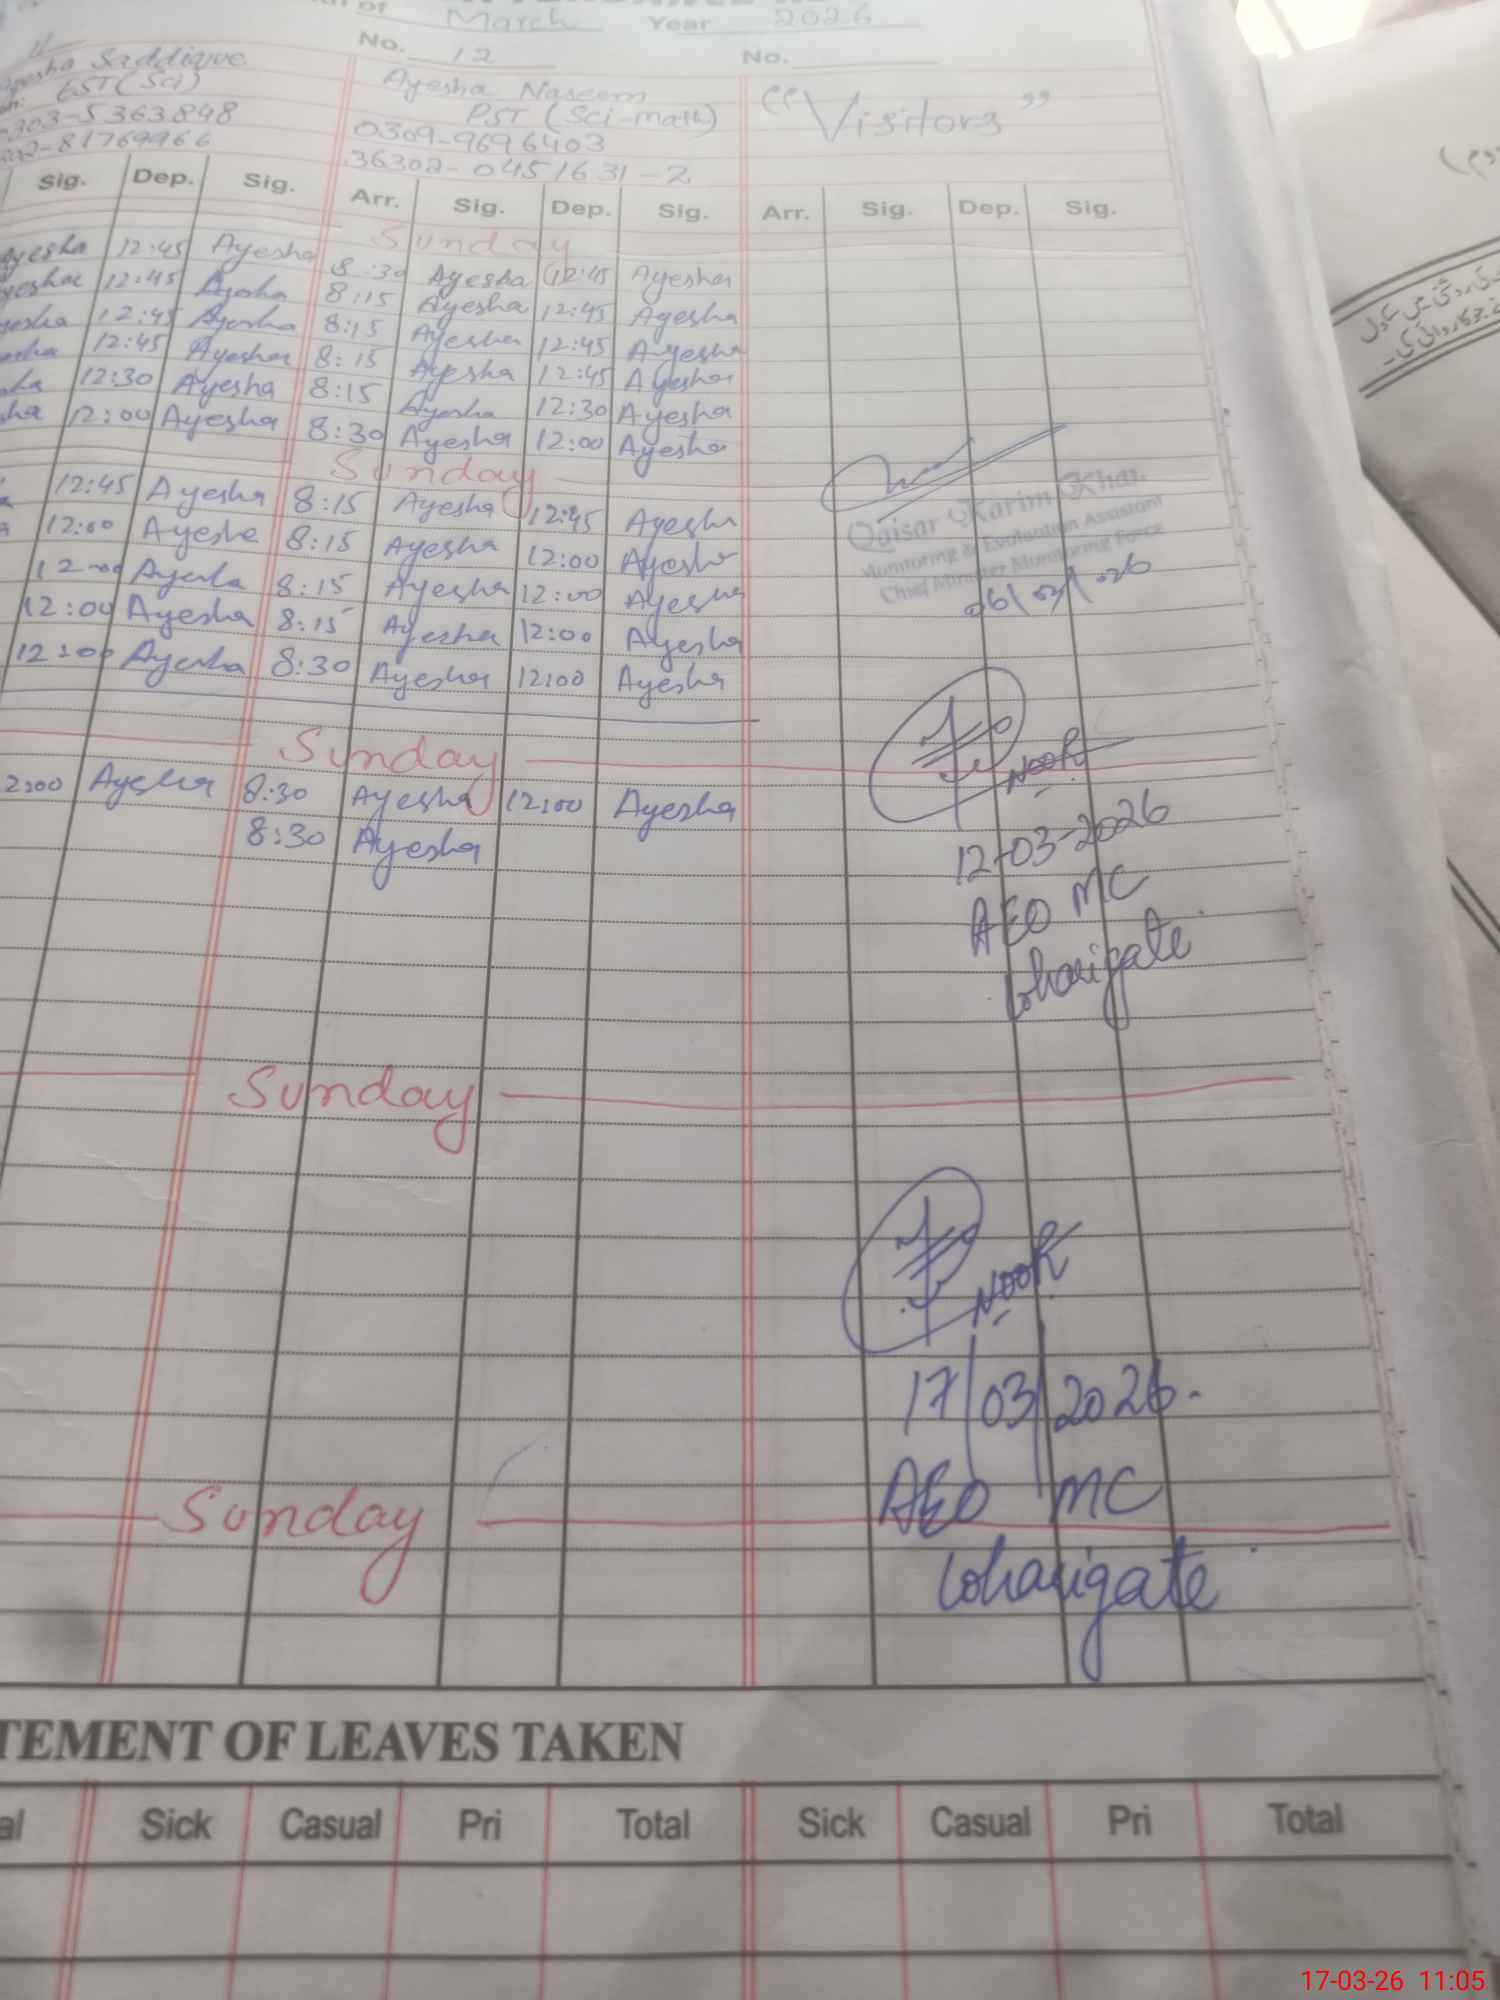 of March Year 2026
Saddique
EST (Sci)
0303-5363848
302-81769966
No. 12
Ayesha Naseem
PST (Sci-math)
0309-9696403
36302-0451631-2
No.
"Visitors"
Sig. Dep. Sig. Arr. Sig. Dep. Sig. Arr. Sig. Dep. Sig.
Sunday
Ayesha 12:45 Ayesha 8:30 Ayesha 12:45 Ayesha
12:45 Ayesha 8:15 Ayesha 12:45 Ayesha
12:45 Ayesha 8:15 Ayesha 12:45 Ayesha
12:45 Ayesha 8:15 Ayesha 12:45 Ayesha
12:30 Ayesha 8:15 Ayesha 12:30 Ayesha
12:00 Ayesha 8:30 Ayesha 12:00 Ayesha
Sunday
12:45 Ayesha 8:15 Ayesha 12:45 Ayesha
12:00 Ayesha 8:15 Ayesha 12:00 Ayesha
12:00 Ayesha 8:15 Ayesha 12:00 Ayesha
12:00 Ayesha 8:15 Ayesha 12:00 Ayesha
12:00 Ayesha 8:30 Ayesha 12:00 Ayesha
Sunday
2:00 Ayesha 8:30 Ayesha 12:00 Ayesha
8:30 Ayesha
Sunday
Sunday
Qaisar Karim Khan
Monitoring & Evaluation Assistant
Chief Minister Monitoring Force
06/03/026
Noor
12-03-2026
AEO MC
Loharigate
Noor
17/03/2026.
AEO MC
Loharigate
TEMENT OF LEAVES TAKEN
al Sick Casual Pri Total Sick Casual Pri Total
17-03-26 11:05